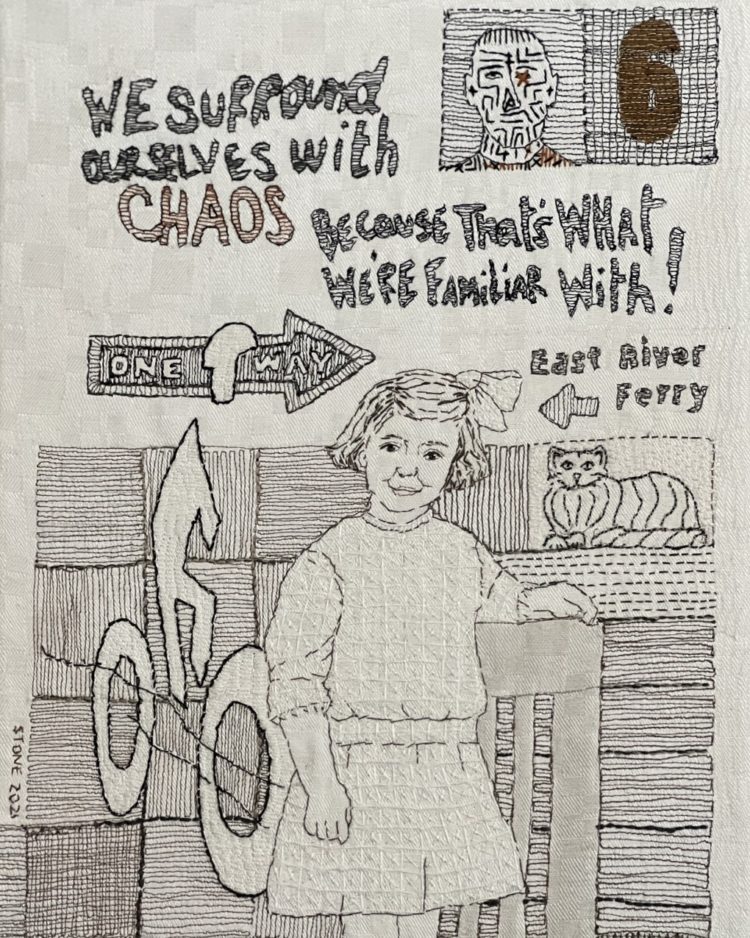 WE SURROUND
OURSELVES WITH
CHAOS
BECAUSE THAT'S WHAT
WE'RE FAMILIAR WITH!
6
ONE WAY
East River
Ferry
STONE 2021